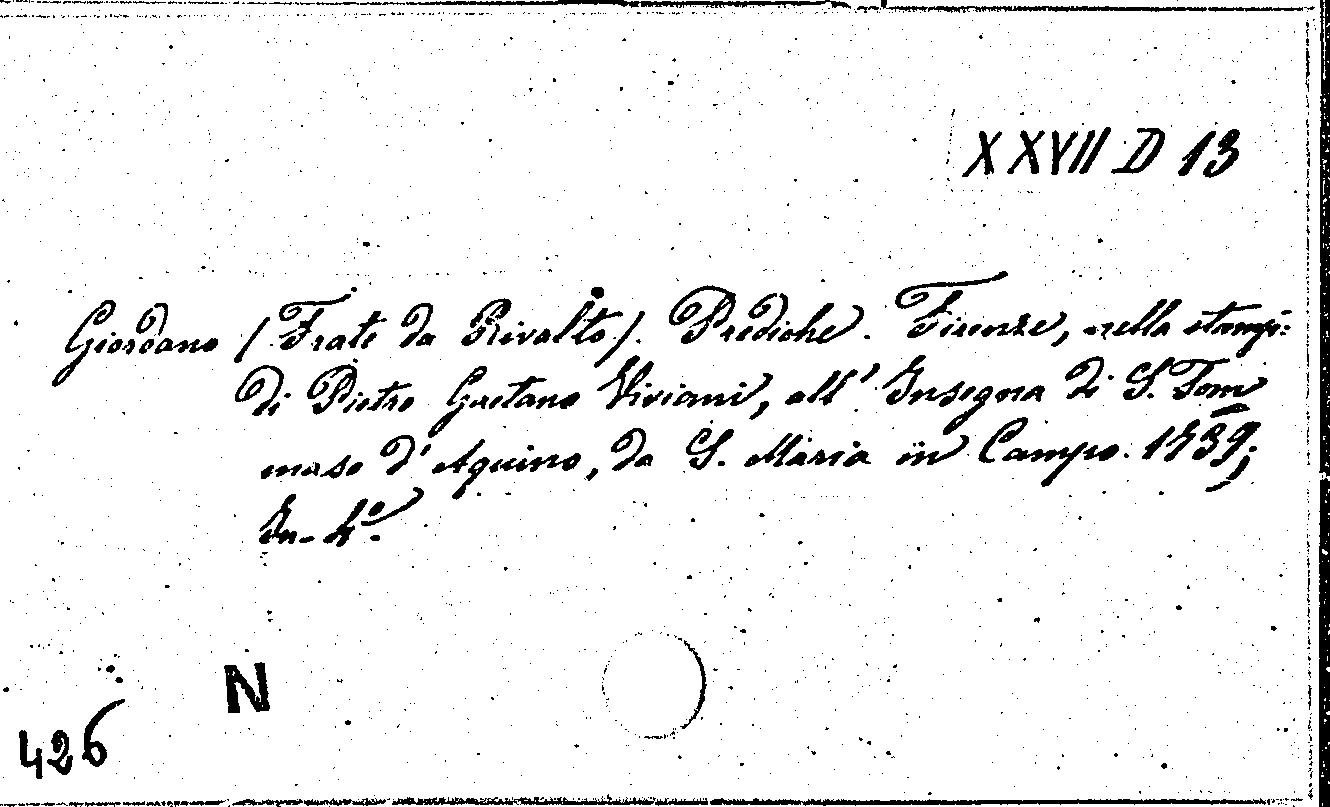 XXVII D 13
Giordano (Frate da Rivalto). Prediche. Firenze, nella stamp:
di Pietro Gaetano Viviani, all' Insegna di S. Tom=
maso d'Aquino, da S. Maria in Campo. 1739;
In-4º.
N
426